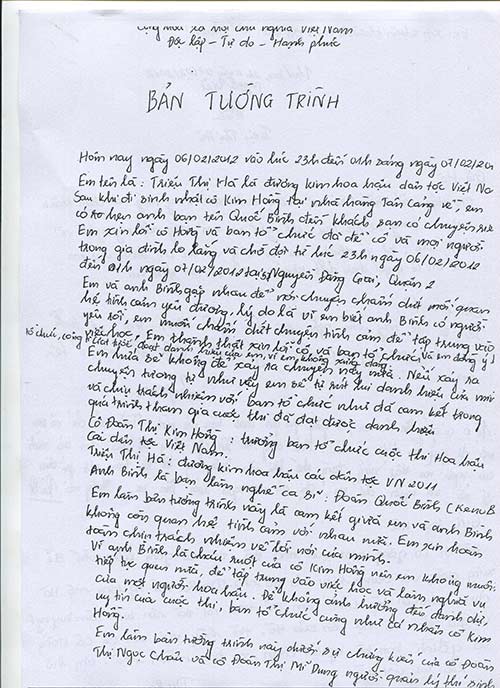 Cộng hòa xã hội chủ nghĩa Việt Nam
Độc lập - Tự do - Hạnh phúc
BẢN TƯỜNG TRÌNH
Hôm nay ngày 06/02/2012 vào lúc 23h đến 01h sáng ngày 07/02/20
Em tên là: Triệu Thị Hà là đương kim hoa hậu dân tộc Việt Na
Sau khi đi sinh nhật cô Kim Hồng tại nhà hàng Tân Cảng về, em
có sơ hẹn anh bạn tên Quốc Bình đến khách sạn có chuyện riê
Em xin lỗi cô Hồng và ban tổ chức đã để cô và mọi người
trong gia đình lo lắng và chờ đợi từ lúc 23h ngày 06/02/2012
đến 01h ngày 07/02/2012 tại Nguyễn Đăng Giai, Quận 2
Em và anh Bình gặp nhau để nói chuyện chấm dứt mối quan
hệ tình cảm yêu đương, lý do là vì em biết anh Bình có người
yêu rồi, em muốn chấm dứt chuyện tình cảm để tập trung vào
việc học, Em thành thật xin lỗi cô và ban tổ chức và em đồng ý
tổ chức, công ty tước đoạt danh hiệu của em, vì em không xứng đáng
Em hứa sẽ không để xảy ra chuyện này nữa. Nếu xảy ra
chuyện tương tự như vậy em sẽ tự rút lui danh hiệu của mình
và chịu trách nhiệm với ban tổ chức như đã cam kết trong
quá trình tham gia cuộc thi đã đạt được danh hiệu
Cô Đoàn Thị Kim Hồng: trưởng ban tổ chức cuộc thi Hoa hậu
các dân tộc Việt Nam.
Triệu Thị Hà: đương kim hoa hậu các dân tộc VN 2011
Anh Bình là bạn làm nghề ca sĩ: Đoàn Quốc Bình (KenB
Em làm bản tường trình này là cam kết giữa em và anh Bình
không còn quan hệ tình cảm với nhau nữa. Em xin hoàn
toàn chịu trách nhiệm về lời nói của mình.
Vì anh Bình là cháu ruột của cô Kim Hồng nên em không muốn
tiếp tục quen nữa, để tập trung vào việc học và làm nghĩa vụ
của một người hoa hậu. Để không ảnh hưởng đến danh dự,
uy tín của cuộc thi, ban tổ chức cũng như cá nhân cô Kim
Hồng.
Em làm bản tường trình này dưới sự chứng kiến của cô Đoàn
Thị Ngọc Châu và cô Đoàn Thị Mĩ Dung người quản lý thí sinh